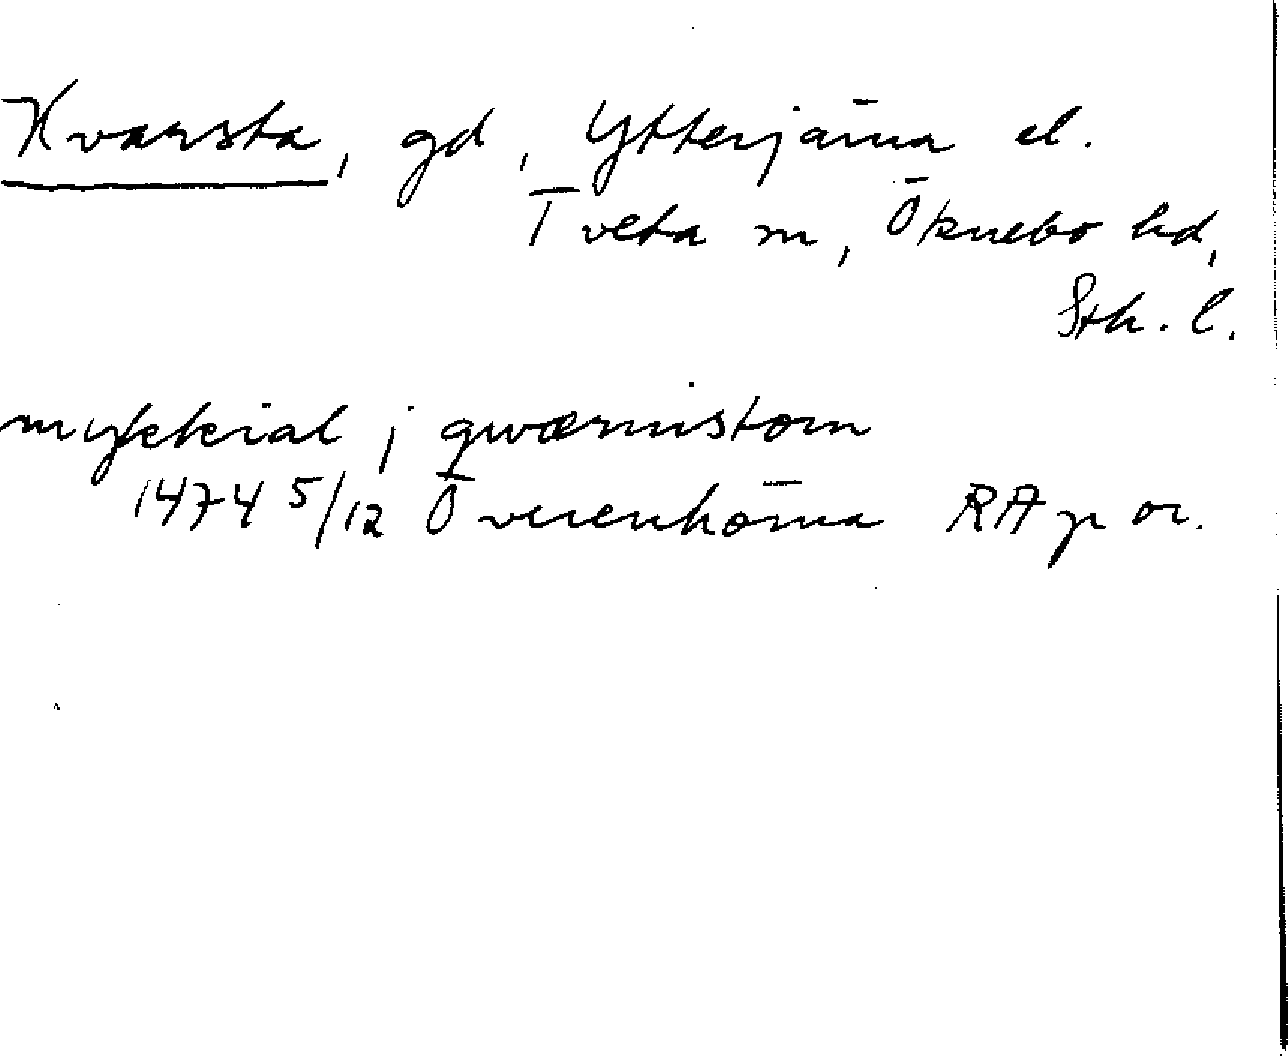 Kvarsta, gd, Ytterjärna el.
Tveta sn, Öknebo hd,
Sth. l.
i qwærnistom
1474 5/12 Överenhörna RA p or.